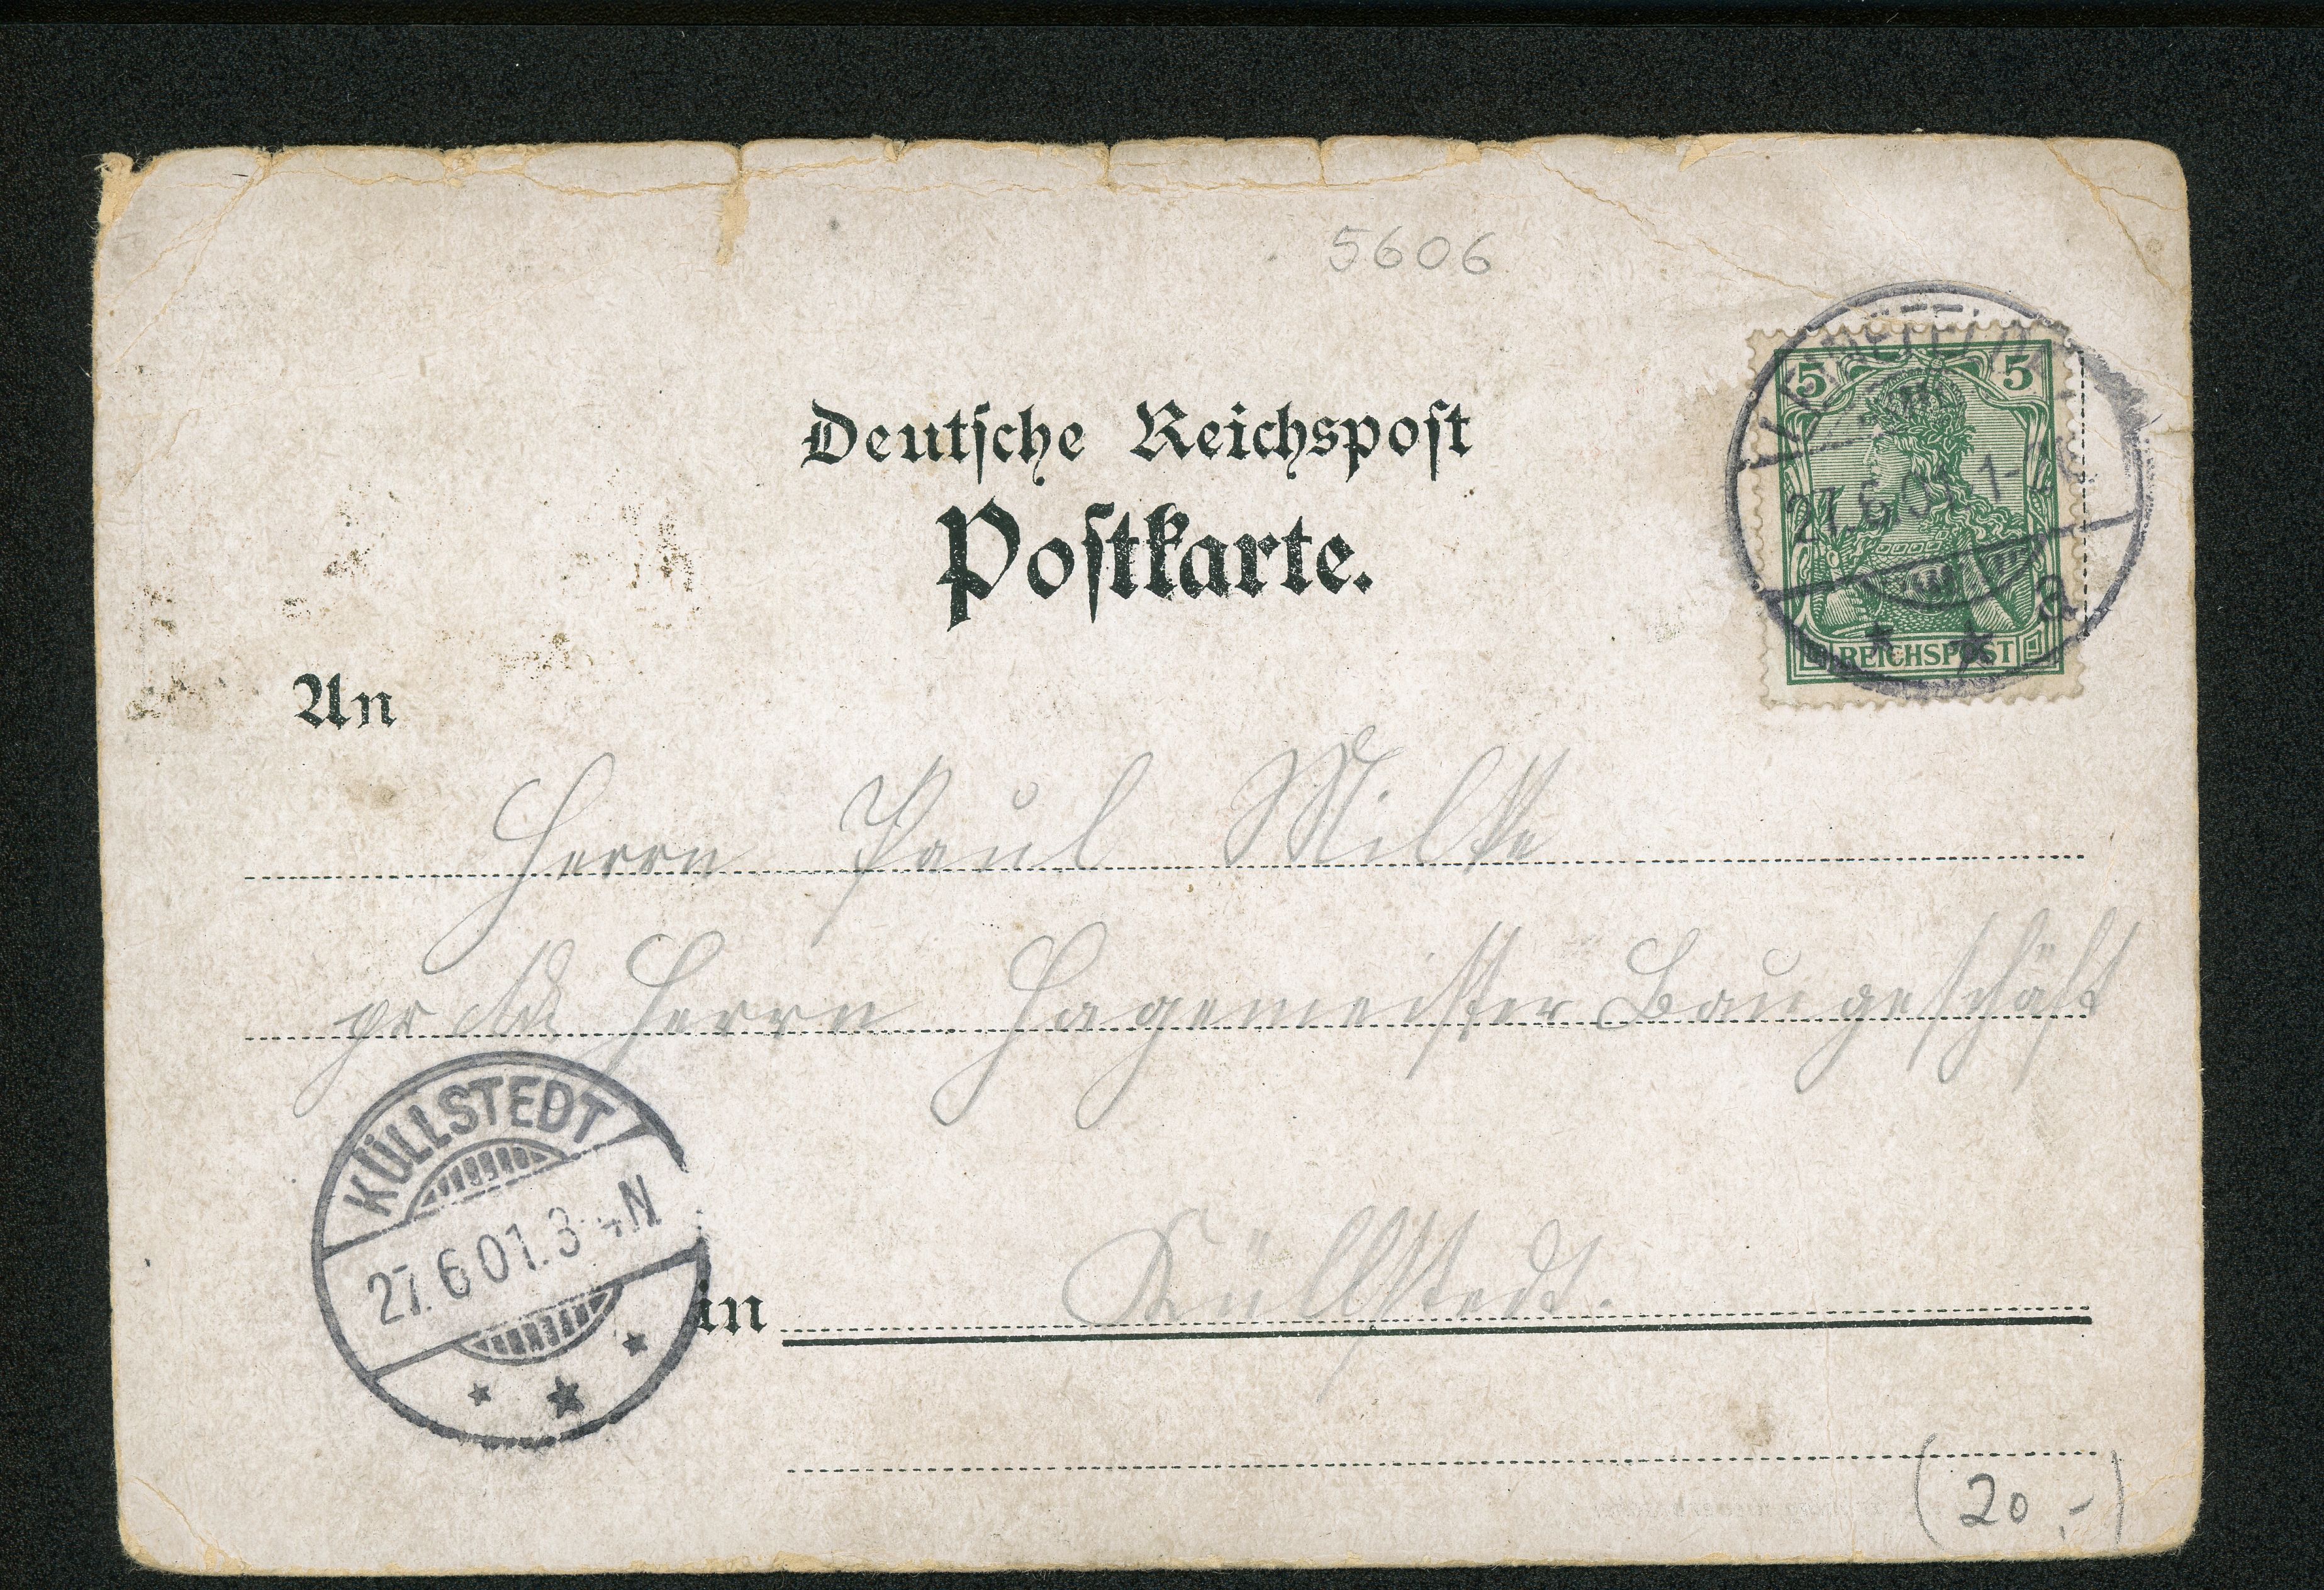 5606
Deutsche Reichspost
Postkarte.
5 5
27.6.01. 1-
a
REICHSPOST
An
Herrn Paul Milke
pr Adr Herrn Hagemeister Baugeschäft
KÜLLSTEDT
27.6.01.3-4N
in Küllstedt.
(20,-)